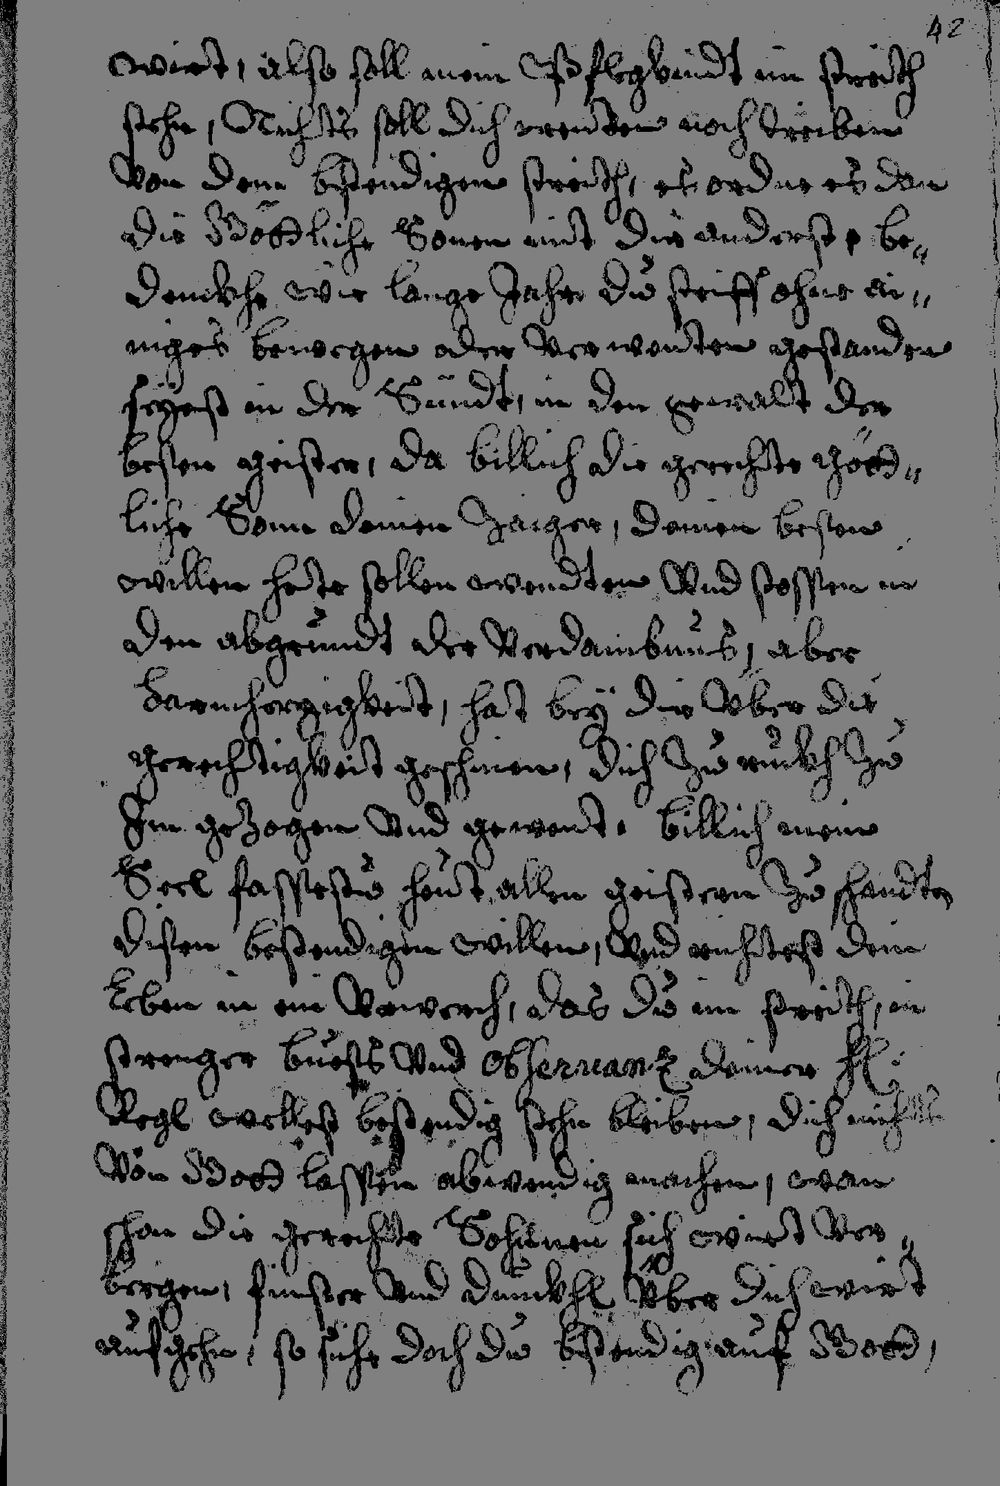 42
wirt, also soll mein Pflegkindt im streith
stehn, Nichts soll dich wenden noch treiben
Von dem bstendigen streith, es ordne es dan
die Göttliche Sonen mit dir anderst, be„
denckhe wie lange Jahr du steiff ohne ei„
niges bewegen oder Verwenten gestanden
seyest in der Sündt, in den gewalt der
besen geister, da billich die gerechte gött„
liche Sonn deinen Zaiger, deinen besen
willen hete sollen wendten Vnd stossen in
den abgrundt der Verdambnus, aber
barmherzigkeit, hat bey dir Vber die
gerechtigkeit geschinen, dich Zu ruckh Zu
Im geZogen Vnd gewent. billich mein
Seel fassestu heut allen geistern Zu schandten
disen bestendigen willen, Vnd richtest dein
Leben in ein Vrwerch, das du im streith, in
strenger buess Vnd obseruantz deiner Hl:
Regl wellest bestendig stehn bleiben, dich nichts
Von Gott lassen abwendig machen, wan
schon die gerechte Sohnnen sich wirt Ver„
bergen, finster Vnd dunckhl Vber dich wirt
aufgehn, so sihe doch du bstendig auf Gott,